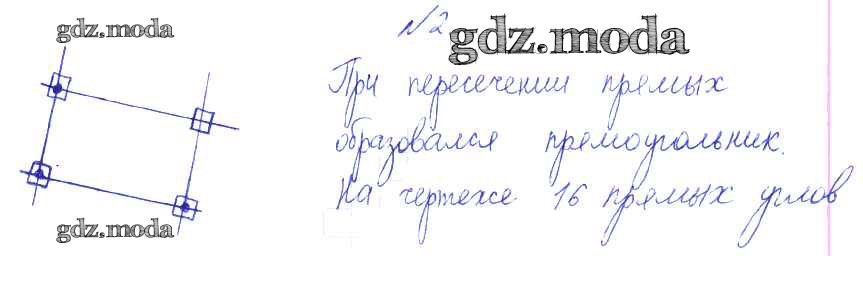 gdz.moda
№2
gdz.moda
При пересечении прямых
образовался прямоугольник.
На чертеже 16 прямых углов
gdz.moda